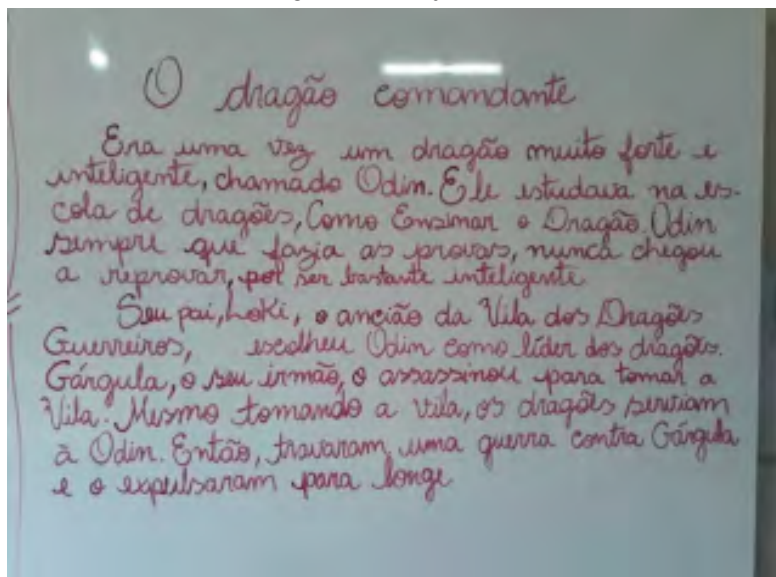 O dragão comandante
Era uma vez um dragão muito forte e
inteligente, chamado Odin. Ele estudava na es-
cola de dragões, Como Ensinar o Dragão. Odin
sempre que fazia as provas, nunca chegou
a reprovar, por ser bastante inteligente.
Seu pai, Loki, o ancião da Vila dos Dragões
Guerreiros, escolheu Odin como líder dos dragões.
Gárgula, o seu irmão, o assassinou para tomar a
Vila. Mesmo tomando a vila, os dragões serviam
à Odin. Então, travaram uma guerra contra Gárgula
e o expulsaram para longe